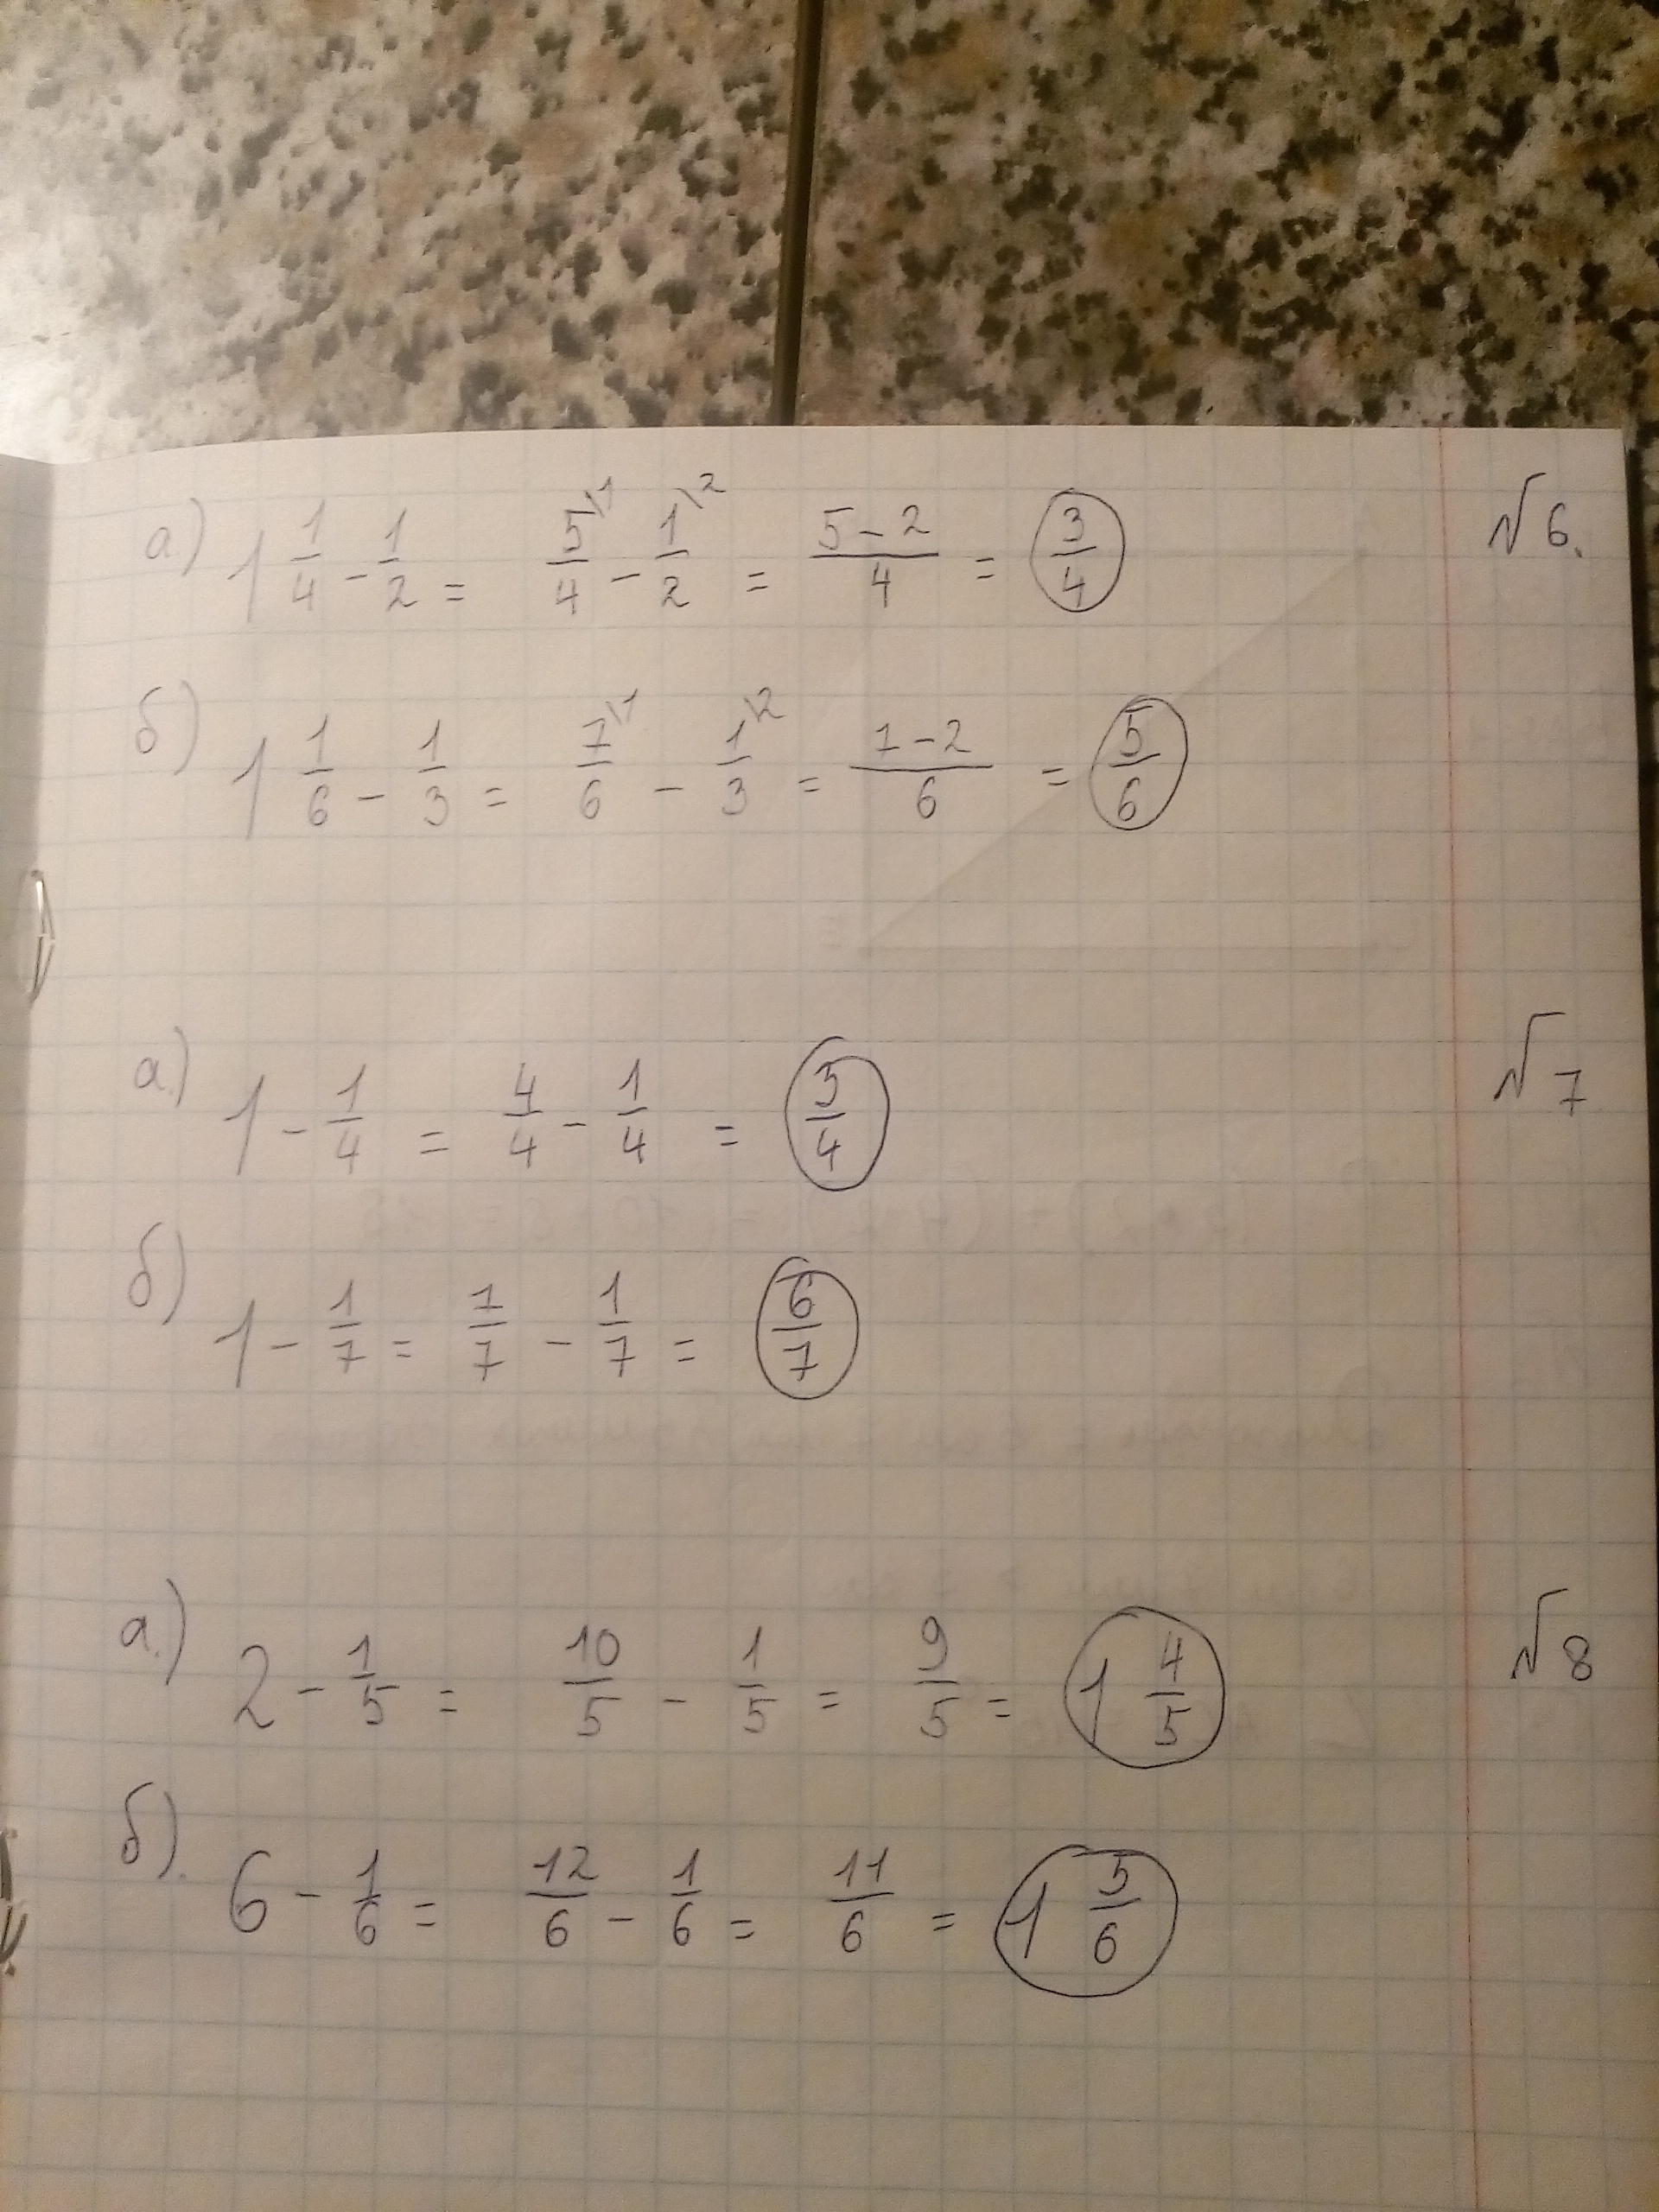 а) 1 1/4 - 1/2 = 5\1/4 - 1\2/2 = 5-2/4 = 3/4 √6.
б) 1 1/6 - 1/3 = 7\1/6 - 1\2/3 = 7-2/6 = 5/6
а) 1 - 1/4 = 4/4 - 1/4 = 3/4 √7
б) 1 - 1/7 = 7/7 - 1/7 = 6/7
а) 2 - 1/5 = 10/5 - 1/5 = 9/5 = 1 4/5 √8
б). 6 - 1/6 = 12/6 - 1/6 = 11/6 = 1 5/6